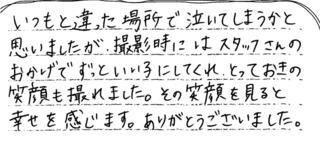 いつもと違った場所で泣いてしまうかと
思いましたが、撮影時にはスタッフさんの
おかげでずっといい子にしてくれ、とっておきの
笑顔も撮れました。その笑顔を見ると
幸せを感じます。ありがとうございました。